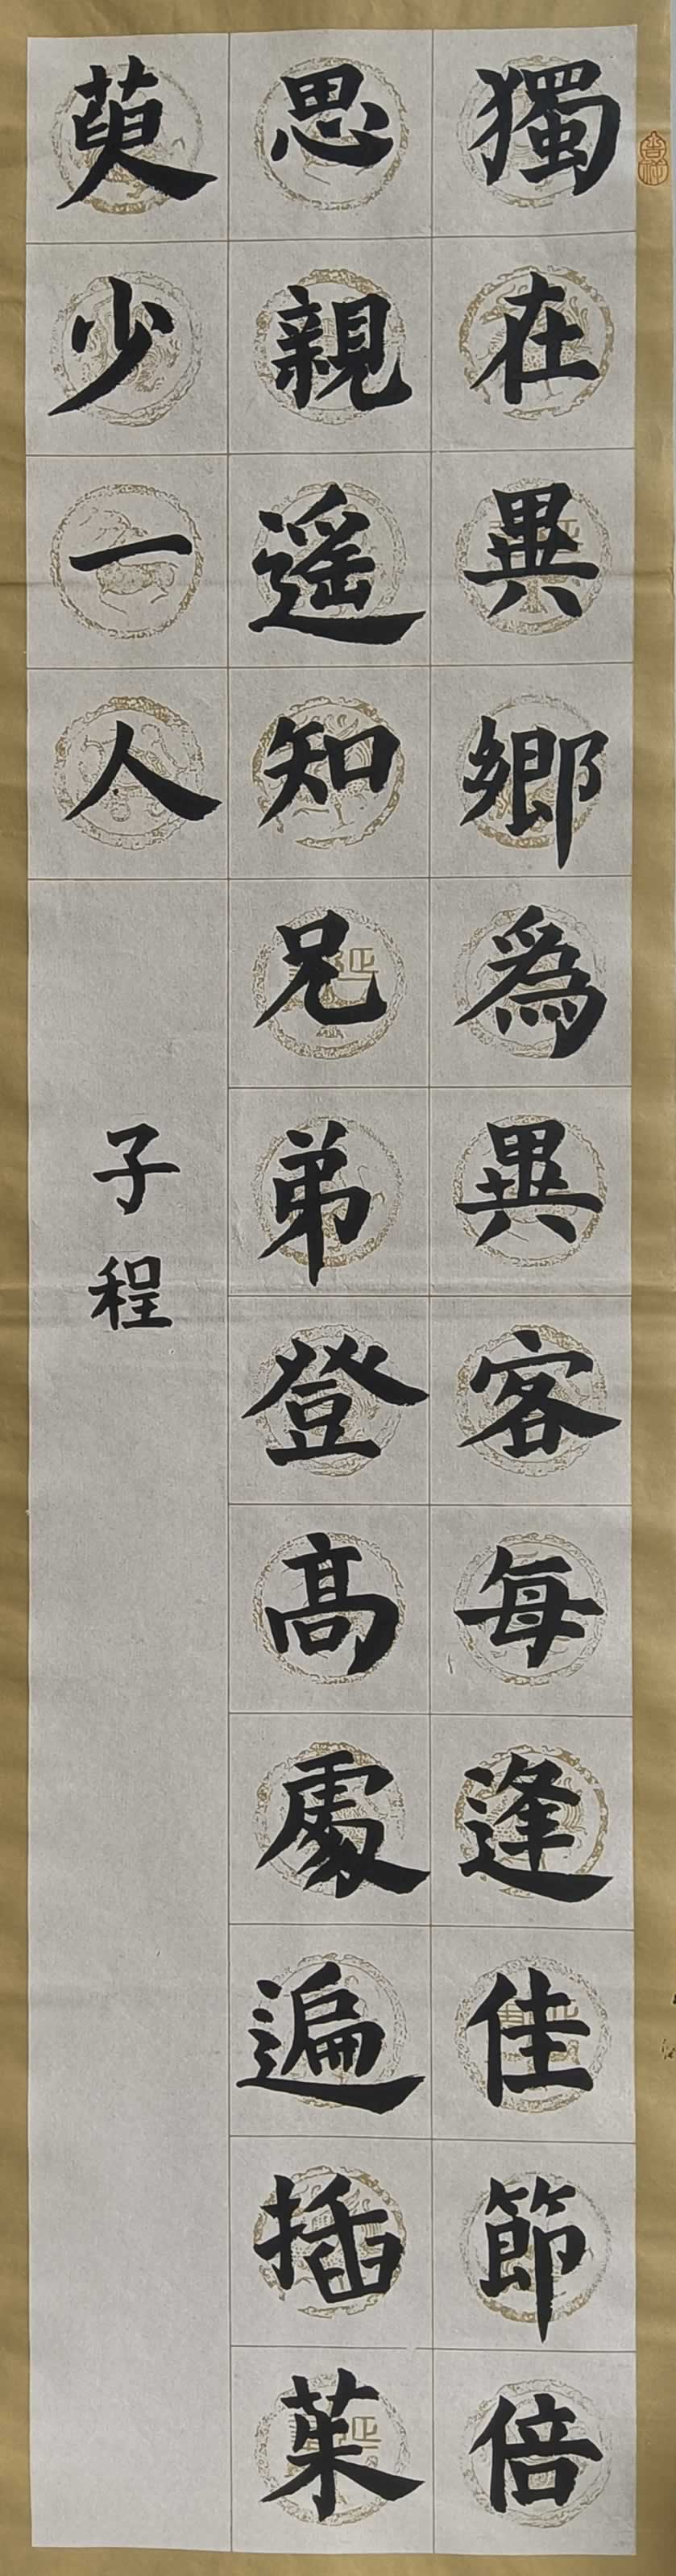 獨在異鄉爲異客每逢佳節倍
思親遥知兄弟登高處遍插茱
萸少一人
子程